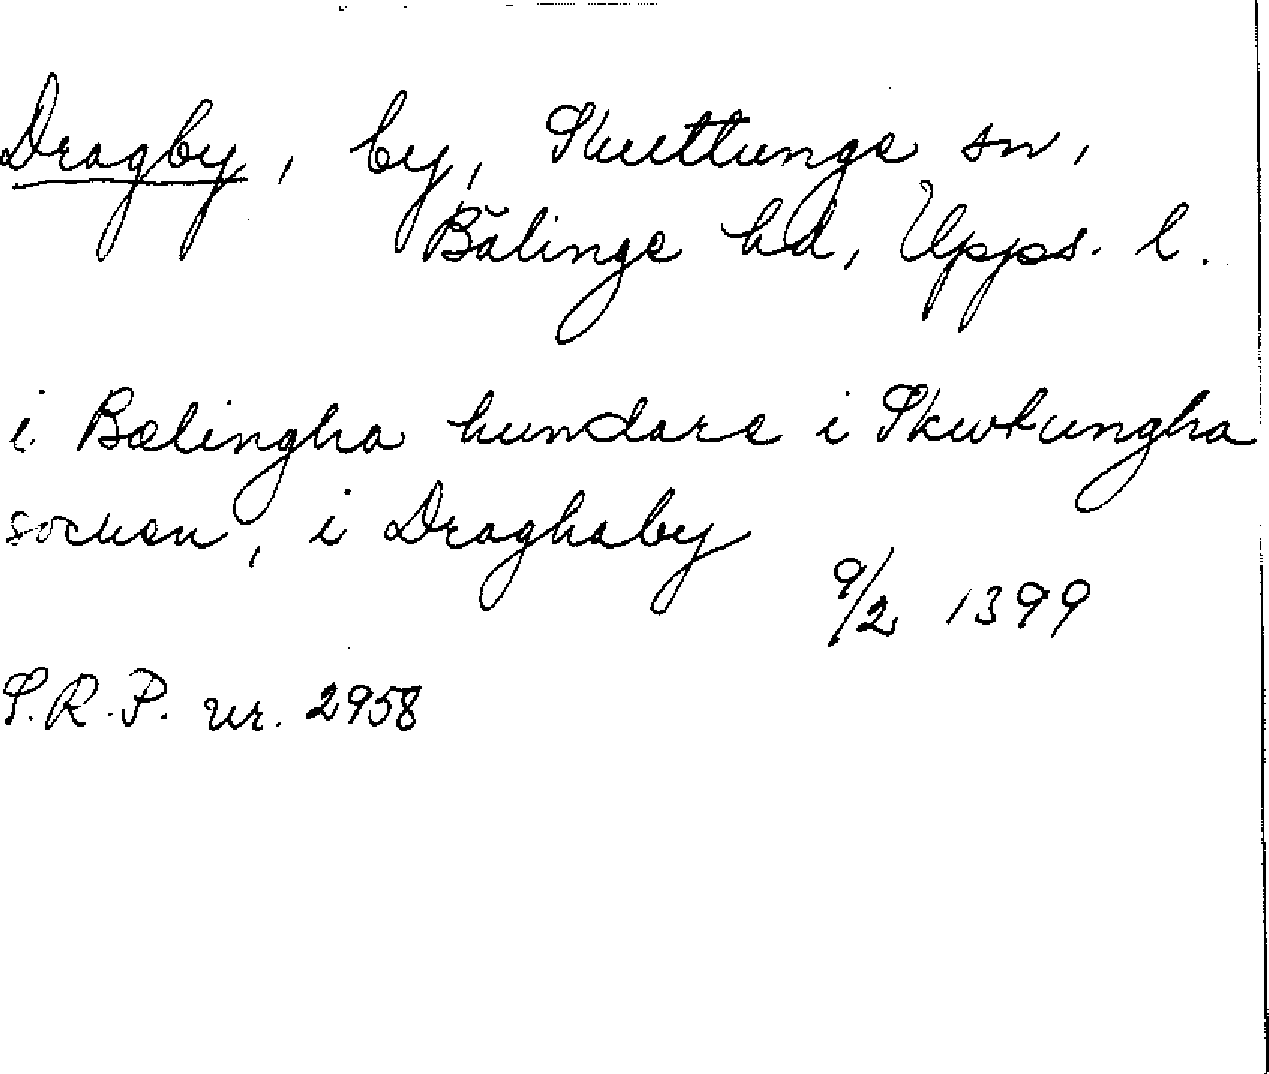 Dragby, by, Skuttunge sn,
Bälinge hd, Upps. l.
i Bælingha hundare i Skwtungha
socken, i Draghaby
9/2 1399
S.R.P. nr. 2958